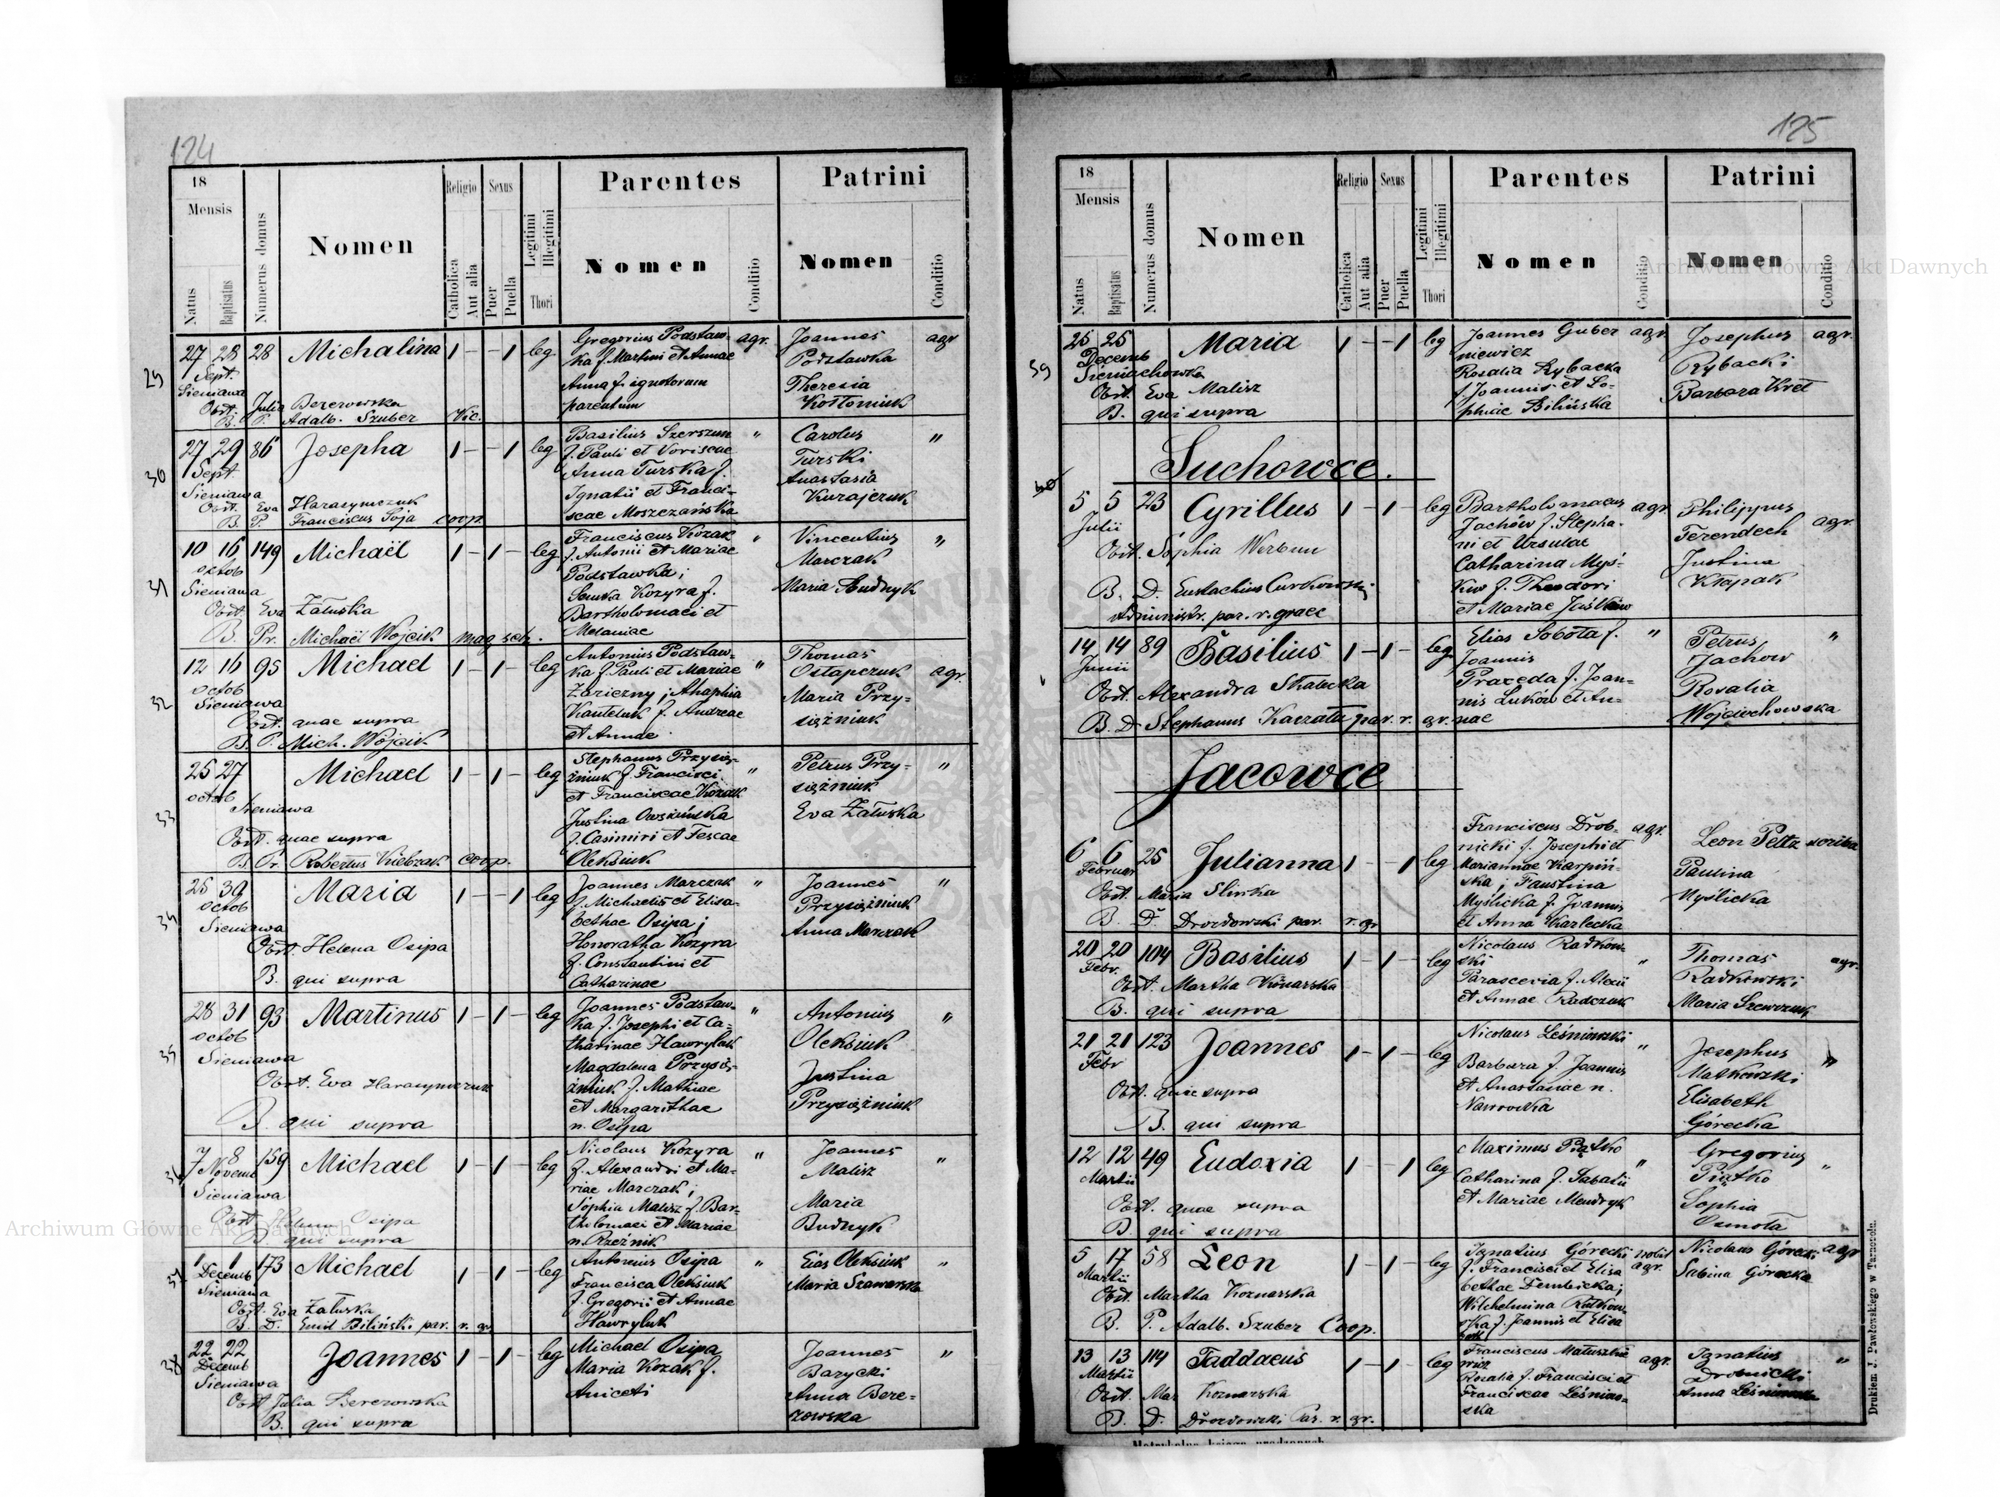 124
18
Mensis
Natus
Baptisatus
Numerus domus
Nomen
Religio
Catholica
Aut alia
Sexus
Puer
Puella
Legitimi
Illegitimi
Thori
Parentes
Nomen
Conditio
Patrini
Nomen
Conditio
29
27 28 28 Michalina 1 – – 1 leg.
Sept.
Sieniawa
Obst. Julia Berezowska
B. P. Adalb. Szuber Vic.
Gregorius Podstaw-
ka f. Martini et Annae
Anna f. ignotorum
parentum
agr.
Joannes
Podstawka
Theresia
Kostoniuk
agr
30
27 29 86 Josepha 1 – – 1 leg
Sept
Sieniawa
Obst. Eva Harasymczuk
B. P. Franciscus Soja coop.
Basilius Szerszun
f. Pauli et Voriscae
Anna Turska f.
Ignatii et Franci-
scae Moszczańska
"
Carolus
Turski
Anastasia
Kurajczuk
"
31
10 16 149 Michaël 1 – 1 – leg
octob
Sieniawa
Obst. Eva Załuska
B. Pr. Michaël Wojcik mag. sch.
Franciscus Kozak
f. Antonii et Mariae
Podstawka;
Kozyra f.
Bartholomaei et
Melaniae
"
Vincentius
Marczak
Maria Budnyk
"
32
12 16 95 Michael 1 – 1 – leg
octob
Sieniawa
Obst. quae supra
B. P. Mich. Wojcik
Antonius Podstaw-
ka f. Pauli et Mariae
Zariczny; Ahaphia
Kanteluk f. Andreae
et Annae
"
Thomas
Ostapczuk
Maria Przy-
siężniuk
agr.
33
25 27 Michael 1 – 1 – leg
octob
Sieniawa
Obst. quae supra
B. Pr. Robertus Kiebzak coop.
Stephanus Przysię-
żniuk f. Francisci
et Franciscae Kozak
Justina Owsińska
f. Casimiri et Tescae
Oleksiuk
"
Petrus Przy-
siężniuk
Eva Załuska
"
34
25 30 Maria 1 – – 1 leg
octob
Sieniawa
Obst. Helena Osipa
B. qui supra
Joannes Marczak
f. Michaelis et Elisa-
bethae Osipa;
Honoratha Kozyra
f. Constantini et
Catharinae
"
Joannes
Przysiężniuk
Anna Marczak
"
35
28 31 93 Martinus 1 – 1 – leg
octob
Sieniawa
Obst. Eva Harasymczuk
B. qui supra
Joannes Podstaw-
ka f. Josephi et Ca-
tharinae Hawryluk
Magdalena Przysię-
żniuk f. Mathiae
et Margarithae
n. Osipa
"
Antonius
Oleksiuk
Justina
Przysiężniuk
"
36
7 8 159 Michael 1 – 1 – leg
Novemb
Sieniawa
Obst. Helena Osipa
B. qui supra
Nicolaus Kozyra
f. Alexandri et Ma-
riae Marczak;
Sophia Malisz f. Bar-
tholomaei et Mariae
n. Rzeźnik
"
Joannes
Malisz
Maria
Budnyk
"
37
1 1 173 Michael 1 – 1 – leg
Decemb
Sieniawa
Obst. Eva Załuska
B. D. Emil Biliński par. r. gr
Antonius Osipa
Francisca Oleksiuk
f. Gregorii et Annae
Hawryluk
"
Elias Oleksiuk
Maria
"
38
22 22 Joannes 1 – 1 – leg
Decemb
Sieniawa
Obst Julia Berezowska
B. qui supra
Michael Osipa
Maria Kozak f.
Aniceti
"
Joannes
Barycki
Anna Bere-
zowska
"
125
18
Mensis
Natus
Baptisatus
Numerus domus
Nomen
Religio
Catholica
Aut alia
Sexus
Puer
Puella
Legitimi
Illegitimi
Thori
Parentes
Nomen
Conditio
Patrini
Nomen
Conditio
39
25 25 Maria 1 – – 1 leg
Decemb
Sieniachowka
Obst. Eva Malisz
B. qui supra
Joannes Guber
niewicz
Rosalia Rybacka
f. Joannis et So-
phiae Bilińska
agr.
Josephus
Rybacki
Barbara Kret
agr.
Suchowce.
40
5 5 23 Cyrillus 1 – 1 – leg
Julii
Obst. Sophia Werbun
B. D. Eustachius Curkowski
Administr. par. r. graec
Bartholomaeus
Jachów f. Stepha-
ni et Ursulae
Catharina Myś-
ków f. Theodori
et Mariae Jaśków
agr.
Philippus
Ferendech
Justina
Kłapak
agr.
14 14 89 Basilius 1 – 1 – leg
Junii
Obst. Alexandra Skalecka
B. D Stephanus Kaczała par. r. gr.
Elias Sobota f.
Joannis
Praxeda f. Joan-
nis Luków et An-
nae
"
Petrus
Jachow
Rosalia
Wojciechowska
"
Jacowce
6 6 25 Julianna 1 – – 1 leg
Februar
Obst. Maria Slinka
B. D. Drozdowski par. r. gr
Franciscus Drob-
nicki f. Josephi et
Mariannae Karpiń-
ska; Faustina
Myślicka f. Joannis
et Anna Karlecka
agr.
Leon Peltz
Paulina
Myślicka
scriba
20 20 104 Basilius 1 – 1 – leg
Febr.
Obst. Martha Konarska
B. qui supra
Nicolaus Radkow-
ski
Parascevia f. Alexii
et Annae Radczuk
"
Thomas
Radkowski
Maria Szewczuk
agr.
21 21 123 Joannes 1 – 1 – leg
Febr
Obst. quae supra
B. qui supra
Nicolaus Leśniowski
Barbara f. Joannis
et Anastasiae n.
Nawrocka
"
Josephus
Matkowski
Elisabeth
Górecka
"
12 12 49 Eudoxia 1 – – 1 leg
Martii
Obst. quae supra
B. qui supra
Maximus Piątko
Catharina f. Sabatii
et Mariae Mendryk
"
Gregorius
Piątko
Sophia
Osmota
"
5 17 58 Leon 1 – 1 – leg
Martii
Obst. Martha Koznarska
B. P. Adalb. Szuber Coop.
Ignatius Górecki
f. Francisci et Elisa
bethae Dembicka;
Wilhelmina Rutkow-
ska f. Joannis et Elisa
beth
nobil
agr.
Nicolaus Górecki
Sabina Górecka
agr
13 13 114 Taddaeus 1 – 1 – leg
Martii
Obst. Mar Koznarska
B. D. Drozdowski Par. r. gr.
Franciscus Matuszkie
wicz
Rosalia f. Francisci et
Franciscae Leśniow-
ska
agr.
Ignatius
Drobnicki
Anna Leśniowska
"
Drukiem J. Pawłowskiego w Tarnopolu.
Archiwum Główne Akt Dawnych
Archiwum Główne Akt Dawnych